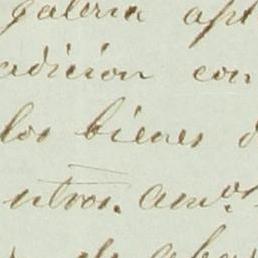 galeria apt
adicion con
los bienes d
ntros. am^os.